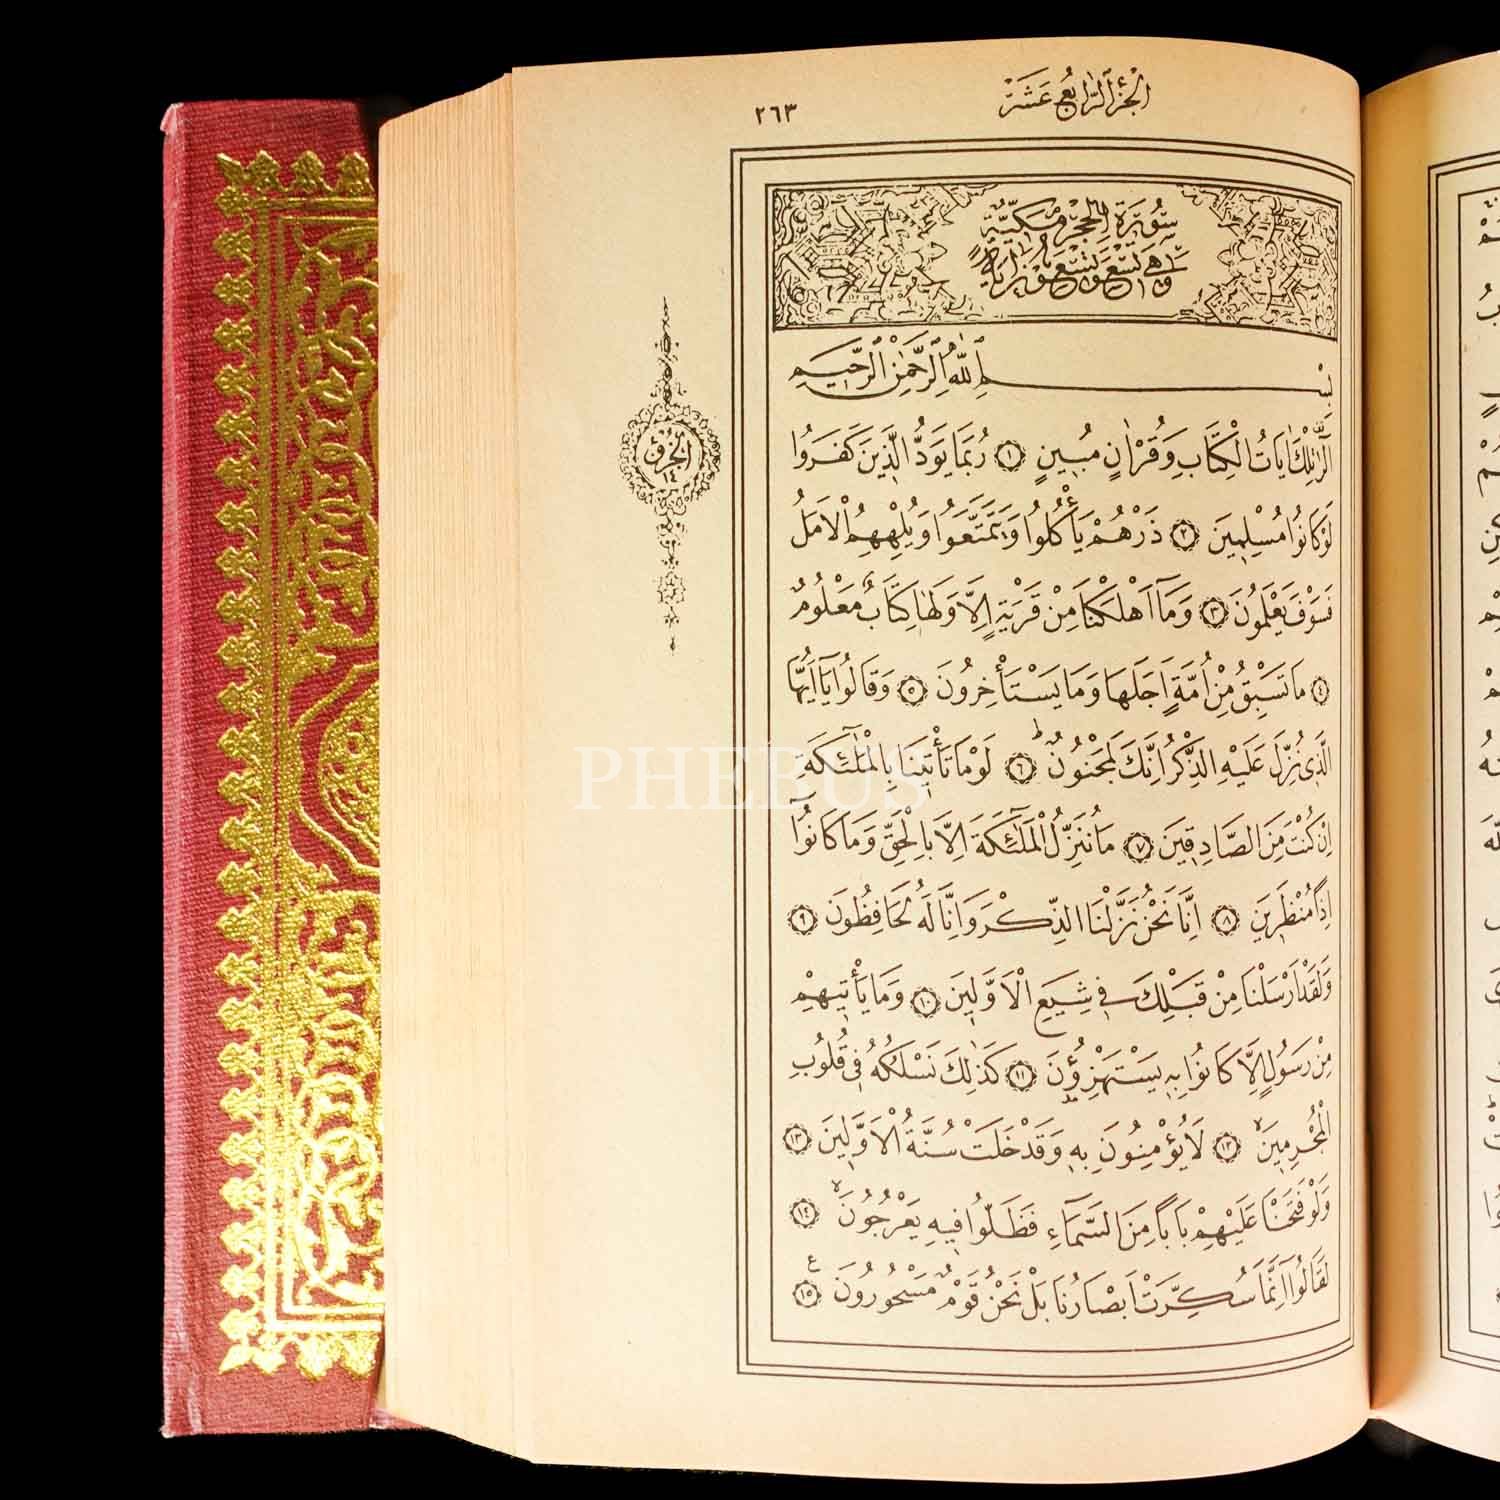 الجزء الرابع عشر
٢٦٣
سورة الحجر مكية
وهي تسع وتسعون اية
بِسْمِ اللّٰهِ الرَّحْمٰنِ الرَّحِيمِ
الٓرٰ تِلْكَ اٰيَاتُ الْكِتَابِ وَقُرْاٰنٍ مُبِينٍ ١ رُبَمَا يَوَدُّ الَّذِينَ كَفَرُوا
لَوْ كَانُوا مُسْلِمِينَ ٢ ذَرْهُمْ يَأْكُلُوا وَيَتَمَتَّعُوا وَيُلْهِهِمُ الْاَمَلُ
فَسَوْفَ يَعْلَمُونَ ٣ وَمَٓا اَهْلَكْنَا مِنْ قَرْيَةٍ اِلَّا وَلَهَا كِتَابٌ مَعْلُومٌ
٤ مَا تَسْبِقُ مِنْ اُمَّةٍ اَجَلَهَا وَمَا يَسْتَأْخِرُونَ ٥ وَقَالُوا يَٓا اَيُّهَا
الَّذِي نُزِّلَ عَلَيْهِ الذِّكْرُ اِنَّكَ لَمَجْنُونٌ ٦ لَوْ مَا تَأْتِينَا بِالْمَلٰٓئِكَةِ
اِنْ كُنْتَ مِنَ الصَّادِقِينَ ٧ مَا نُنَزِّلُ الْمَلٰٓئِكَةَ اِلَّا بِالْحَقِّ وَمَا كَانُٓوا
اِذًا مُنْظَرِينَ ٨ اِنَّا نَحْنُ نَزَّلْنَا الذِّكْرَ وَاِنَّا لَهُ لَحَافِظُونَ ٩
وَلَقَدْ اَرْسَلْنَا مِنْ قَبْلِكَ فِي شِيَعِ الْاَوَّلِينَ ١٠ وَمَا يَأْتِيهِمْ
مِنْ رَسُولٍ اِلَّا كَانُوا بِهِ يَسْتَهْزِؤُنَ ١١ كَذٰلِكَ نَسْلُكُهُ فِي قُلُوبِ
الْمُجْرِمِينَ ١٢ لَا يُؤْمِنُونَ بِهِ وَقَدْ خَلَتْ سُنَّةُ الْاَوَّلِينَ ١٣
وَلَوْ فَتَحْنَا عَلَيْهِمْ بَابًا مِنَ السَّمَٓاءِ فَظَلُّوا فِيهِ يَعْرُجُونَ ١٤
لَقَالُٓوا اِنَّمَا سُكِّرَتْ اَبْصَارُنَا بَلْ نَحْنُ قَوْمٌ مَسْحُورُونَ ١٥
ع
الجزؤ
١٤
PHEBUS